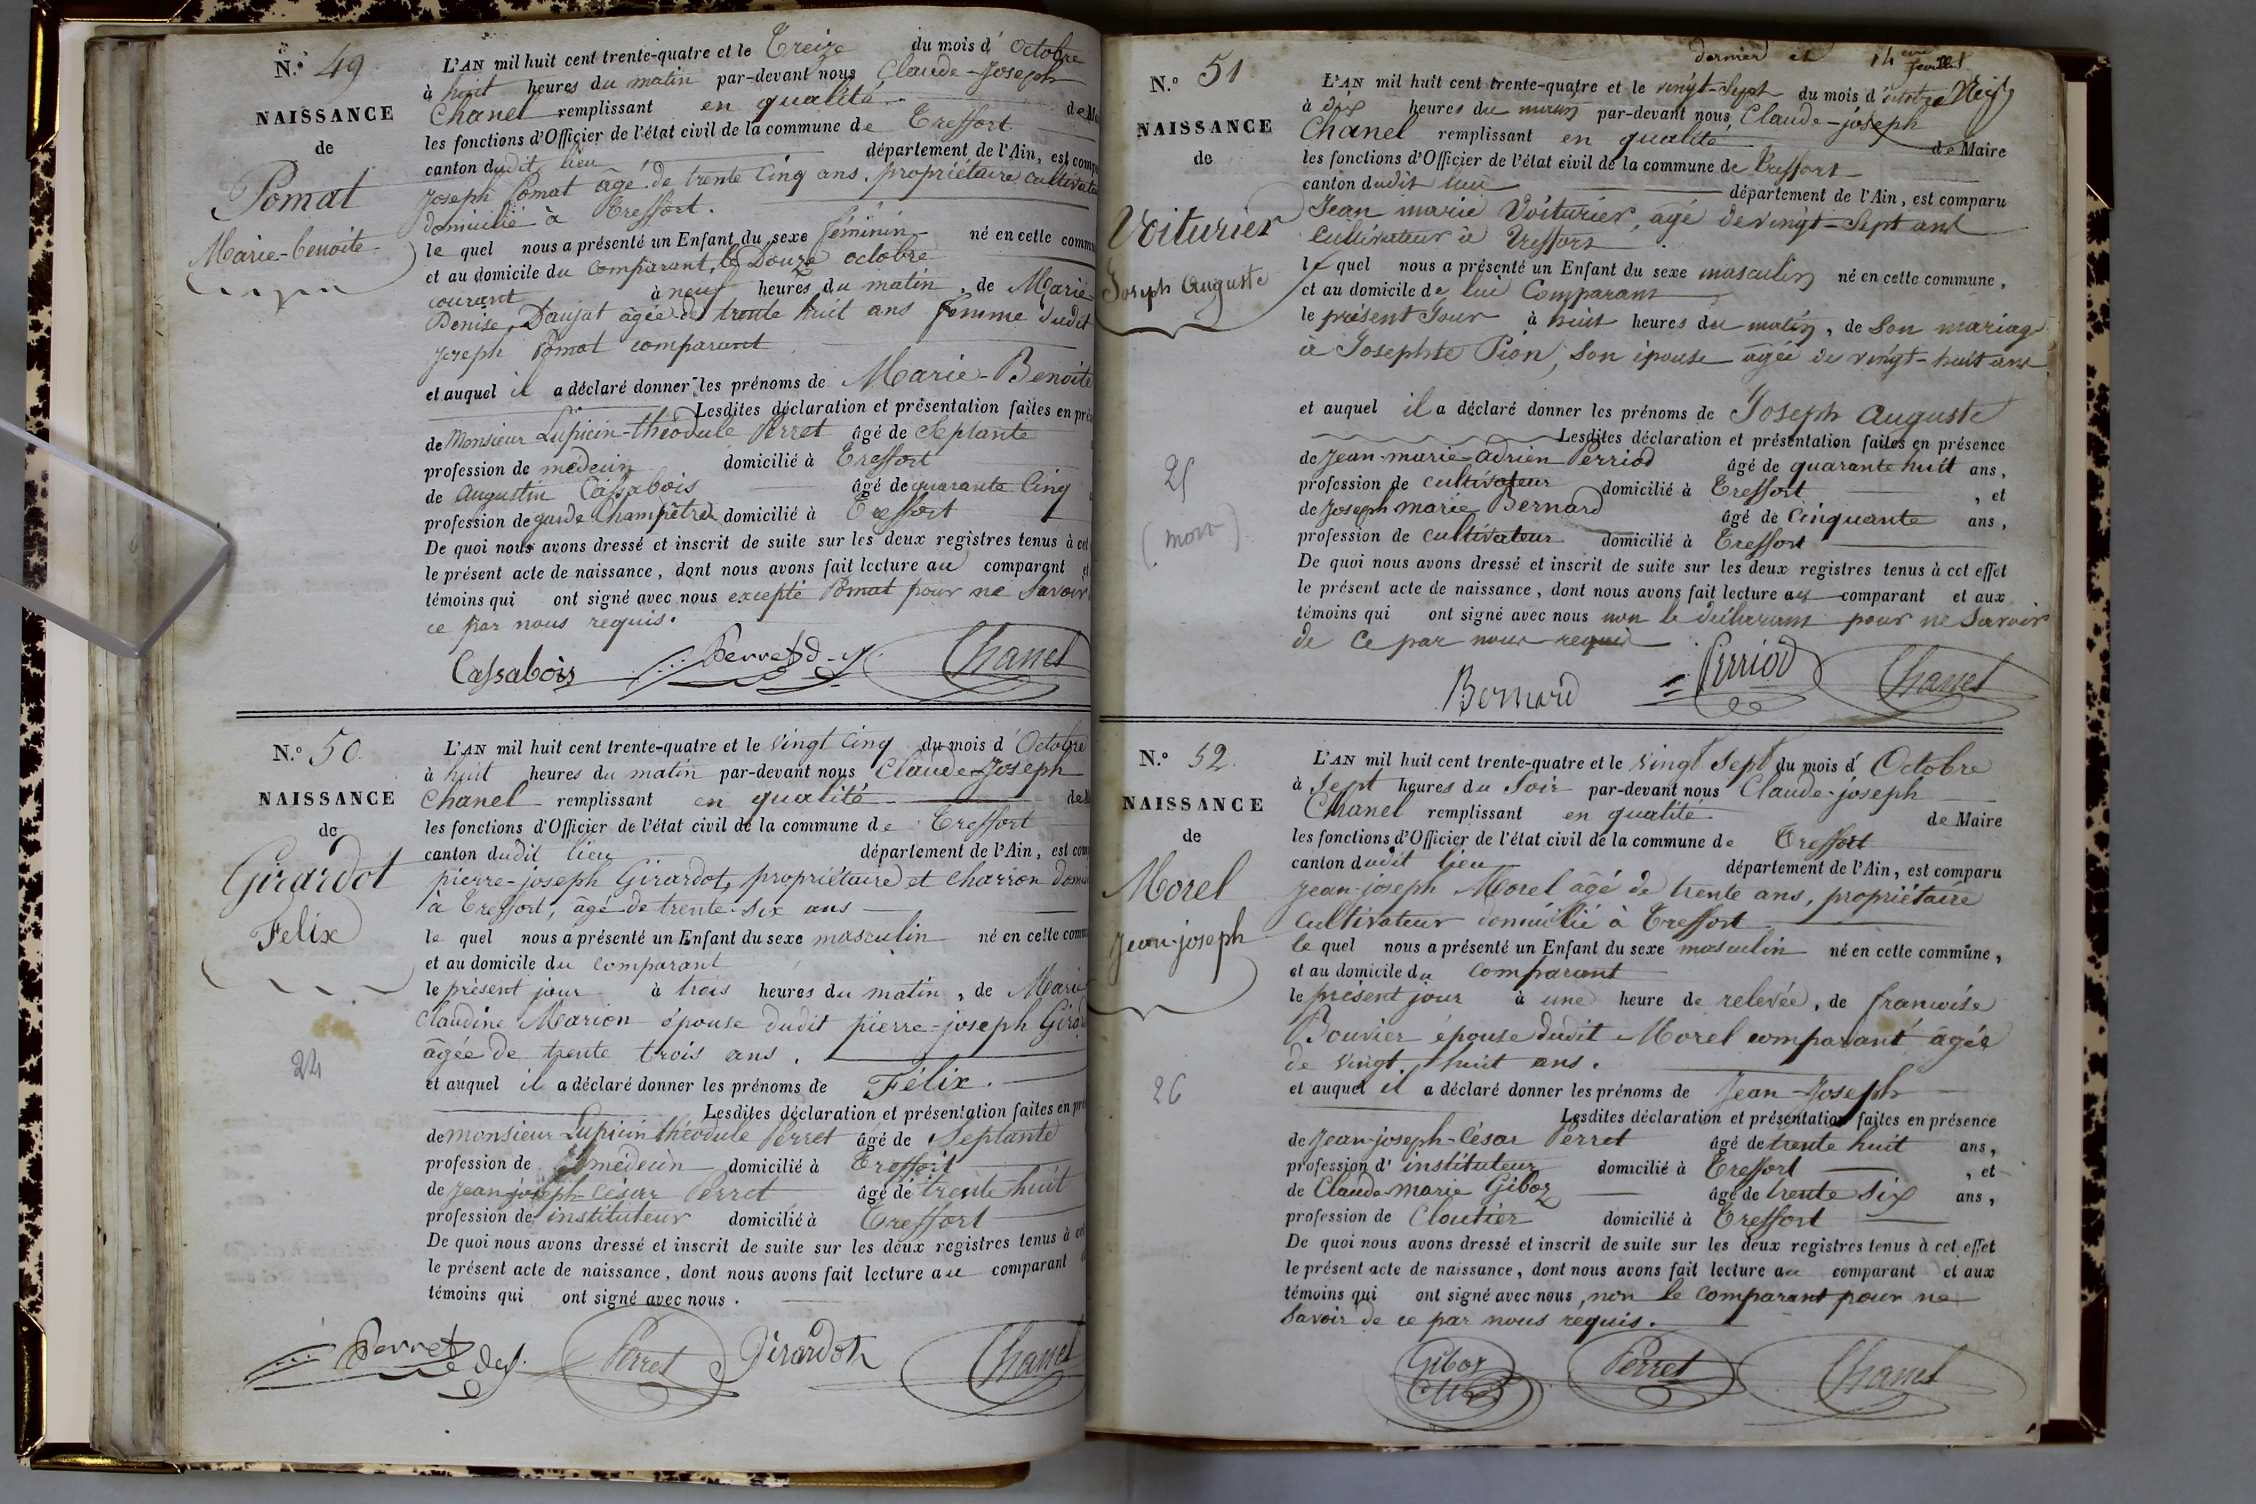 N.° 49
NAISSANCE
de
Pomat
Marie-Benoite
L'AN mil huit cent trente-quatre et le Treize du mois d'octobre
à huit heures du matin par-devant nous Claude-Joseph
Chanel remplissant en qualité de M
les fonctions d'Officier de l'état civil de la commune de Treffort
canton dudit lieu département de l'Ain, est comp
Joseph Pomat âgé de trente cinq ans, propriétaire cultivate
domicilié à Treffort.
le quel nous a présenté un Enfant du sexe féminin né en cette commu
et au domicile du comparant, le Douze octobre
courant à neuf heures du matin, de Marie
Denise Daujat âgée de trente huit ans femme dudit
Joseph Pomat comparant
et auquel il a déclaré donner les prénoms de Marie-Benoite
Lesdites déclaration et présentation faites en pré
de Monsieur Lupicin-théodule Perret âgé de septante
profession de médecin domicilié à Treffort
de augustin Cassabois âgé de quarante cinq
profession de garde Champêtre domicilié à Treffort
De quoi nous avons dressé et inscrit de suite sur les deux registres tenus à cet
le présent acte de naissance, dont nous avons fait lecture au comparant et
témoins qui ont signé avec nous excepté Pomat pour ne Savoir
ce par nous requis.
Cassabois Perret d. Chanel
N.° 50.
NAISSANCE
de
Girardot
Felix
24
L'AN mil huit cent trente-quatre et le vingt cinq du mois d'Octobre
à huit heures du matin par-devant nous Claude-Joseph
Chanel remplissant en qualité de M
les fonctions d'Officier de l'état civil de la commune de Treffort
canton dudit lieu département de l'Ain, est com
pierre-joseph Girardot, propriétaire et charron domi
à Treffort, âgé de trente-six ans
le quel nous a présenté un Enfant du sexe masculin né en cette comm
et au domicile du comparant
le présent jour à trois heures du matin, de Marie
Claudine Marion épouse dudit pierre-joseph Girar
âgée de trente trois ans.
et auquel il a déclaré donner les prénoms de Félix.
Lesdites déclaration et présentation faites en pré
de monsieur Lupicin théodule Perret âgé de Septante
profession de médecin domicilié à Treffort
de jean-joseph-César Perret âgé de trente huit
profession de instituteur domicilié à Treffort
De quoi nous avons dressé et inscrit de suite sur les deux registres tenus à cet
le présent acte de naissance, dont nous avons fait lecture au comparant
témoins qui ont signé avec nous.
Perret Perret Girardot Chanel
dernier et 14eme feuillet
N.° 51
NAISSANCE
de
Voiturier
Joseph Auguste
25
(mort)
L'AN mil huit cent trente-quatre et le vingt-Sept du mois d'octobre
à dix heures du matin par-devant nous Claude-joseph
Chanel remplissant en qualité de Maire
les fonctions d'Officier de l'état civil de la commune de Treffort
canton dudit lieu département de l'Ain, est comparu
Jean marie Voiturier, agé de vingt-Sept ans
Cultivateur à Treffort
le quel nous a présenté un Enfant du sexe masculin né en cette commune,
et au domicile de lui Comparant
le présent Jour à huit heures du matin, de Son mariage
à Josephte Pion, Son épouse âgée de vingt-huit ans
et auquel il a déclaré donner les prénoms de Joseph Auguste
Lesdites déclaration et présentation faites en présence
de Jean-marie-adrien Perriod âgé de quarante huit ans,
profession de cultivateur domicilié à Treffort, et
de Joseph marie Bernard âgé de Cinquante ans,
profession de cultivateur domicilié à Treffort
De quoi nous avons dressé et inscrit de suite sur les deux registres tenus à cet effet
le présent acte de naissance, dont nous avons fait lecture au comparant et aux
témoins qui ont signé avec nous non le déclarant pour ne Savoir
de Ce par nous requis
Bernard Perriod Chanel
N.° 52.
NAISSANCE
de
Morel
Jean-joseph
26
L'AN mil huit cent trente-quatre et le vingt Sept du mois d'Octobre
à Sept heures du Soir par-devant nous Claude-joseph
Chanel remplissant en qualité de Maire
les fonctions d'Officier de l'état civil de la commune de Treffort
canton dudit lieu département de l'Ain, est comparu
jean-joseph Morel âgé de trente ans, propriétaire
cultivateur domicilié à Treffort
le quel nous a présenté un Enfant du sexe masculin né en cette commune,
et au domicile du comparant
le présent jour à une heure de relevée, de francoise
Bouvier épouse dudit Morel comparant âgée
de vingt-huit ans.
et auquel il a déclaré donner les prénoms de Jean-Joseph
Lesdites déclaration et présentation faites en présence
de Jean-joseph-César Perret âgé de trente huit ans,
profession d'instituteur domicilié à Treffort, et
de Claude-marie Giboz âgé de trente six ans,
profession de Cloutier domicilié à Treffort
De quoi nous avons dressé et inscrit de suite sur les deux registres tenus à cet effet
le présent acte de naissance, dont nous avons fait lecture au comparant et aux
témoins qui ont signé avec nous, non le comparant pour ne
Savoir de ce par nous requis.
Giboz Perret Chanel